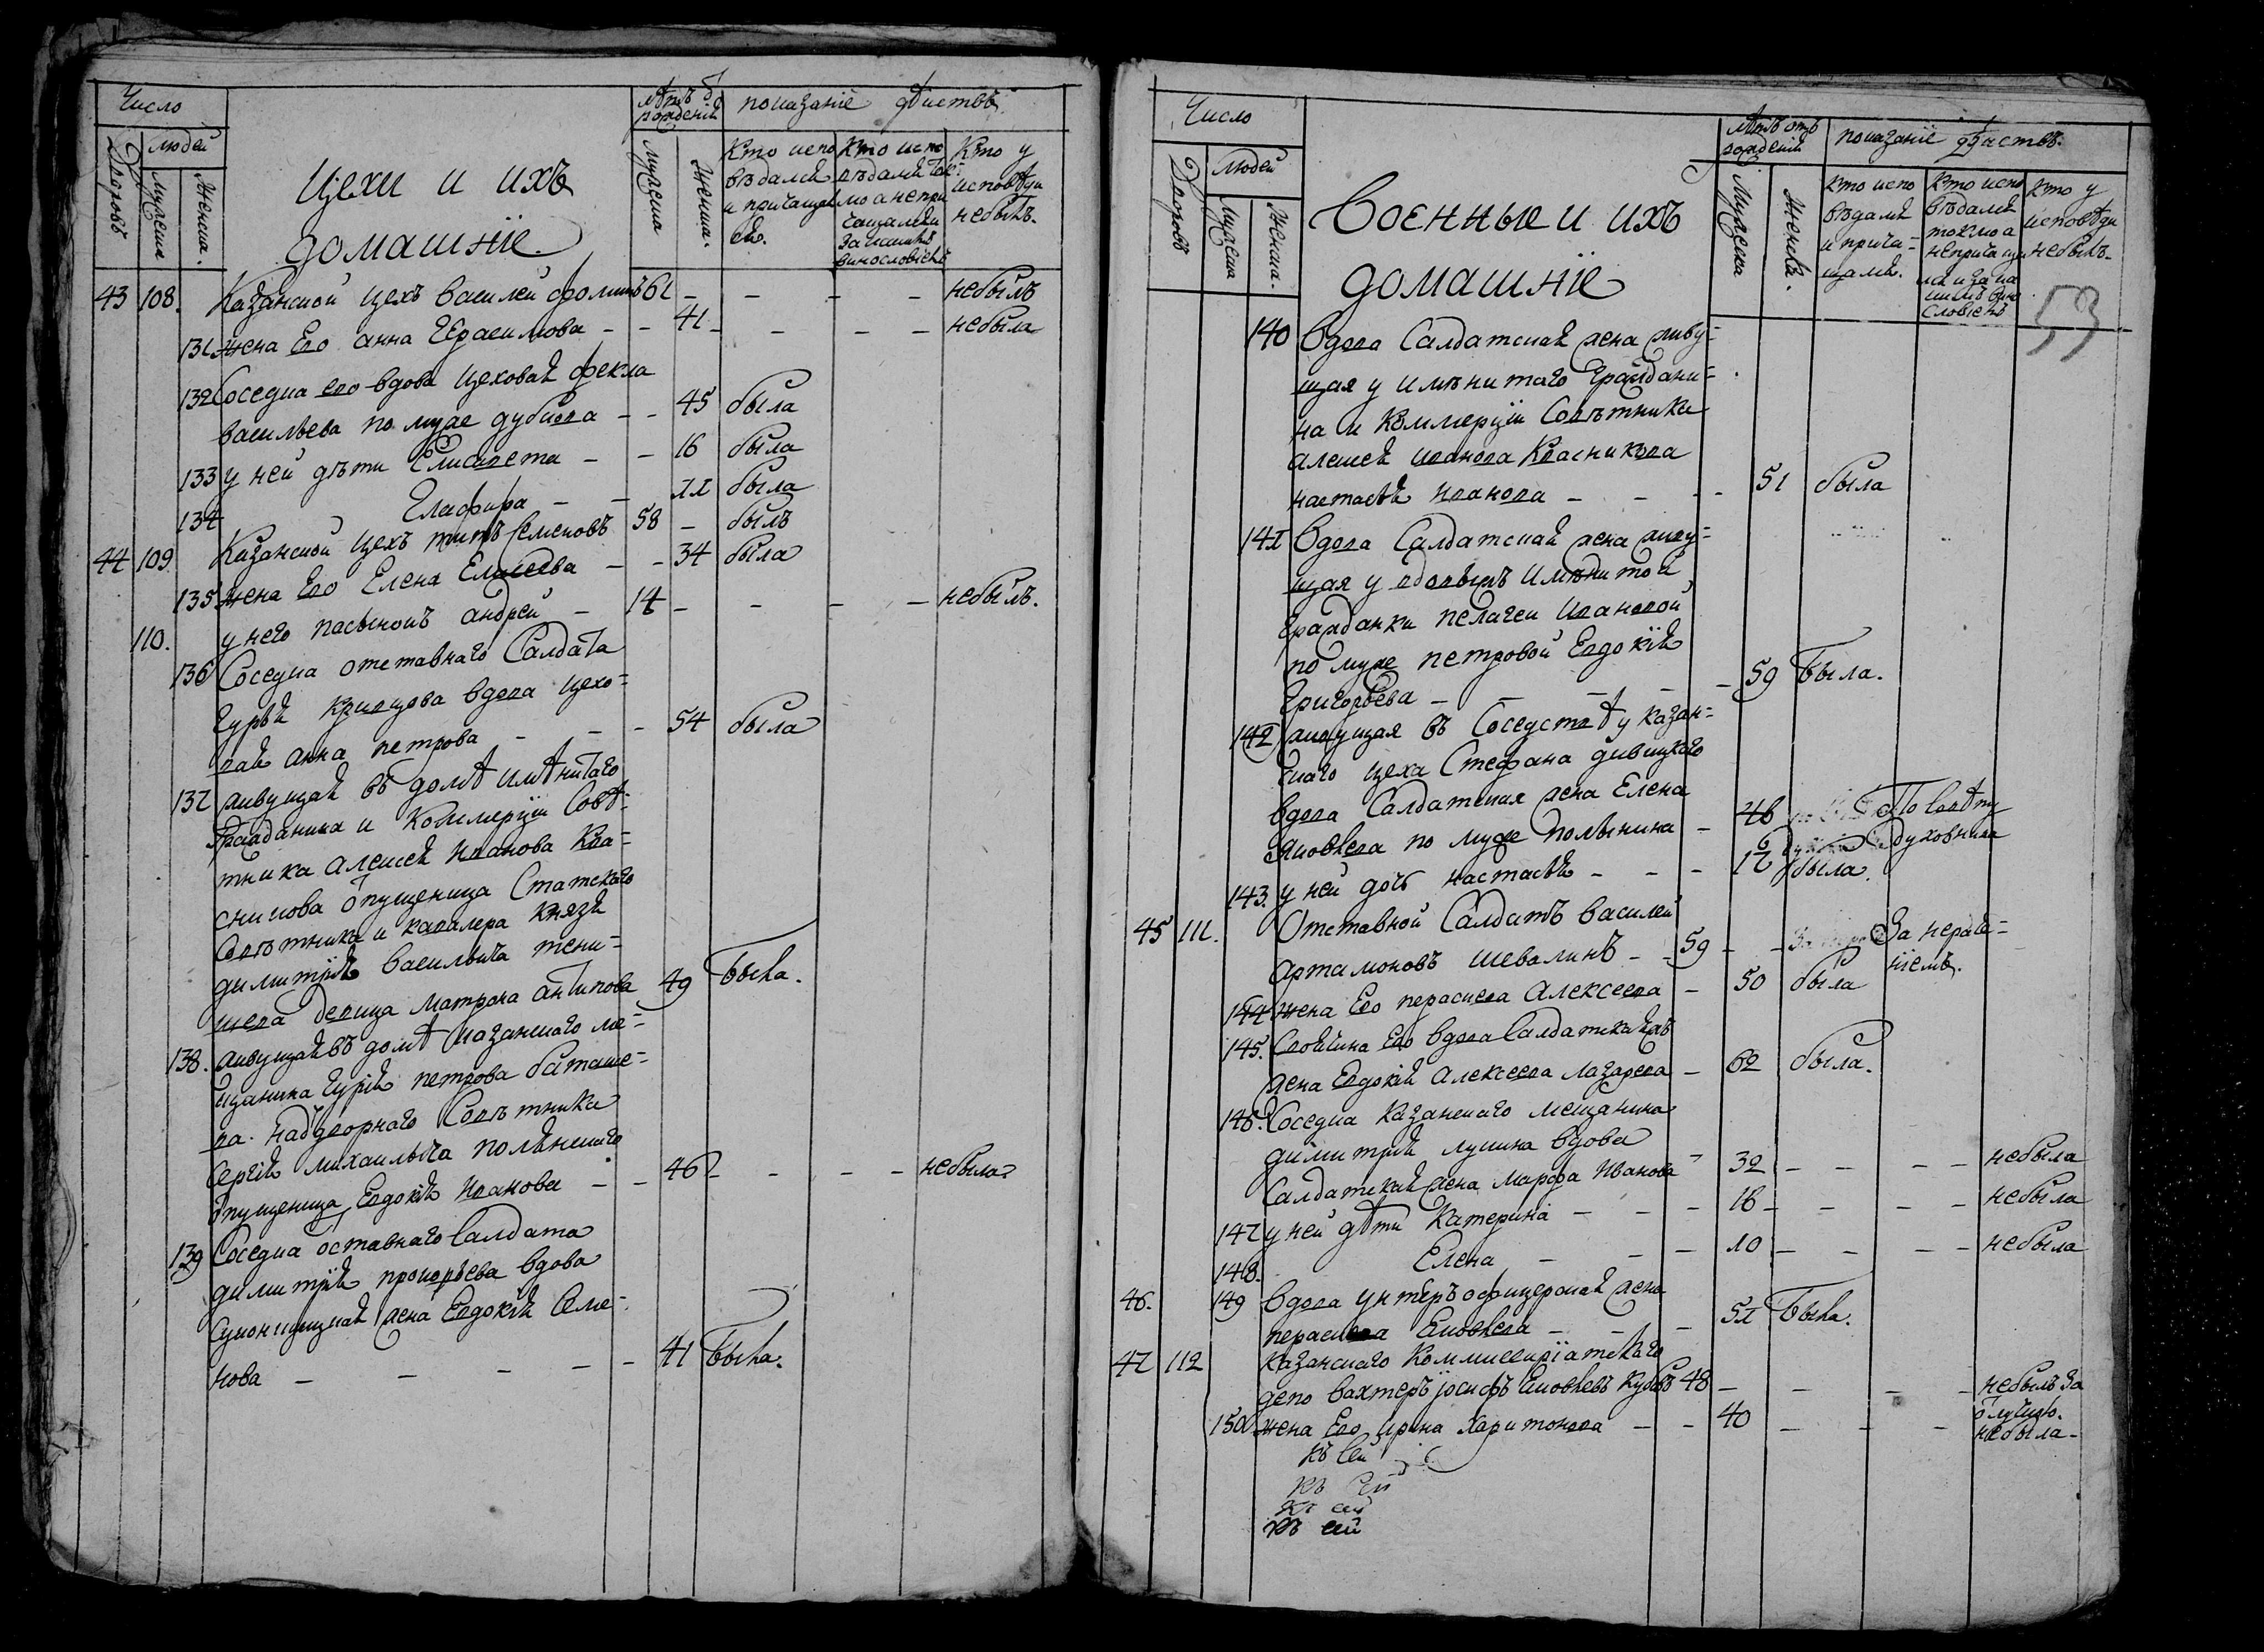 Число
людей
Дворовъ
Мужеска
Женска.
Цехи и ихъ
домашнїе.
лѣтъ ѿ
рожденїя
Мужеска
Женска.
показанїе дѣйствъ
Кто испо
вѣдался
и причащал
ся.
Кто испо
вѣдался ток
мо а непри
чащался и
за какимъ
винословїемъ
Кто у
исповѣди
небылъ.
43 108. Казанской цехъ Василей Фоминъ 61 - - - - небылъ
131 жена Его Анна Герасимова - - 41 - - - - небыла
132 Соседка его вдова цеховая Фекла
Васильева по муже Дубкова - - 45 была
133 у ней дѣти Елисавета - - 16 была
134 Глафира - - 11 была
44 109. Казанской цехъ Титъ Семеновъ 58 - былъ
135 жена Его Елена Елисеева - - 34 была
110. у него пасынокъ Андрей - 14 - - - - небылъ.
136 Соседка отставнаго Салдата
Гурья Кривцова вдова цехо=
вая Анна Петрова - - - 54 была
137 живущая въ домѣ Имѣнитаго
Гражданина и Коммерцїи Совѣ=
тника Алексея Иванова Кра=
сникова отпущеница Статскаго
Советника и кавалера Князя
Димитрїя Васильича Тени=
шева девица Матрона Антипова 49 была.
138. живущая въ домѣ казанскаго ме=
щанина Гурїя Петрова Баташе=
ва. Надворнаго Советника
Сергїя Михаилыча Полянскаго
отпущеница Евдокїя Иванова - - 46 - - - - небыла
139 Соседка оставнаго Салдата
Димитрїя Прокорьева вдова
Сукон
жена Евдокїя Семе=
нова - - - - - 41 была.
Число
людей
Дворовъ
Мужеска
Женска.
Военные и ихъ
домашнїе
лѣтъ отъ
рожденїя
Мужеска
Женска.
показанїе дѣйствъ.
Кто испо
вѣдался
и прича=
щался.
Кто испо
вѣдался
токмо а
непричащал
ся и за ка
кимъ вино
словїемъ
Кто у
исповѣди
небылъ.
53
140 Вдова Салдатская жена живу=
щая у имѣнитаго Граждани=
на и Коммерцїи Советника
Алексея Иванова Красникова
Настасья Иванова - - - 51 была
141 Вдова Салдатская жена живу=
щая у вдовымъ Имѣнитой
Гражданки Пелагеи Ивановой
по муже Петровой Евдокїя
Григорьева - - - - - 59 была.
142 живущая въ Соседствѣ у казан=
скаго цеха Стефана Дивицкаго
вдова Салдатская жена Елена
Яковлева по муже Полынина - 46 По Совѣту
духовника
143. у ней дочь Настасья - - - 16 была.
45 111. Отставной Салдатъ Василей
Артамоновъ Шевалинъ - - 59 - - За нераде=
нїемъ.
144 жена Его Парасковья Алексеева - 50 была
145. Своячина Его вдова Салдатская
жена Евдокїя Алексеева Лазарева - 62 была.
146. Соседка казанскаго мещанина
Димитрїя Лукина вдова
Салдатская жена Марфа Иванова - 32 - - - - небыла
147 у ней дѣти Катерина - - - 16 - - - - небыла
148. Елена - - - 10 - - - - небыла
46. 149 Вдова унтеръ офицерская жена
Яковлева - - - 51 была.
47 112 Казанскаго Коммиссарїатскаго
депо вахтеръ Іосифъ Яковлевъ 48 - - - - небылъ за
отлучкою.
150 жена Его Ирина Харитонова - - 40 - - - небыла -
къ сей
къ сей
къ сей
къ сей